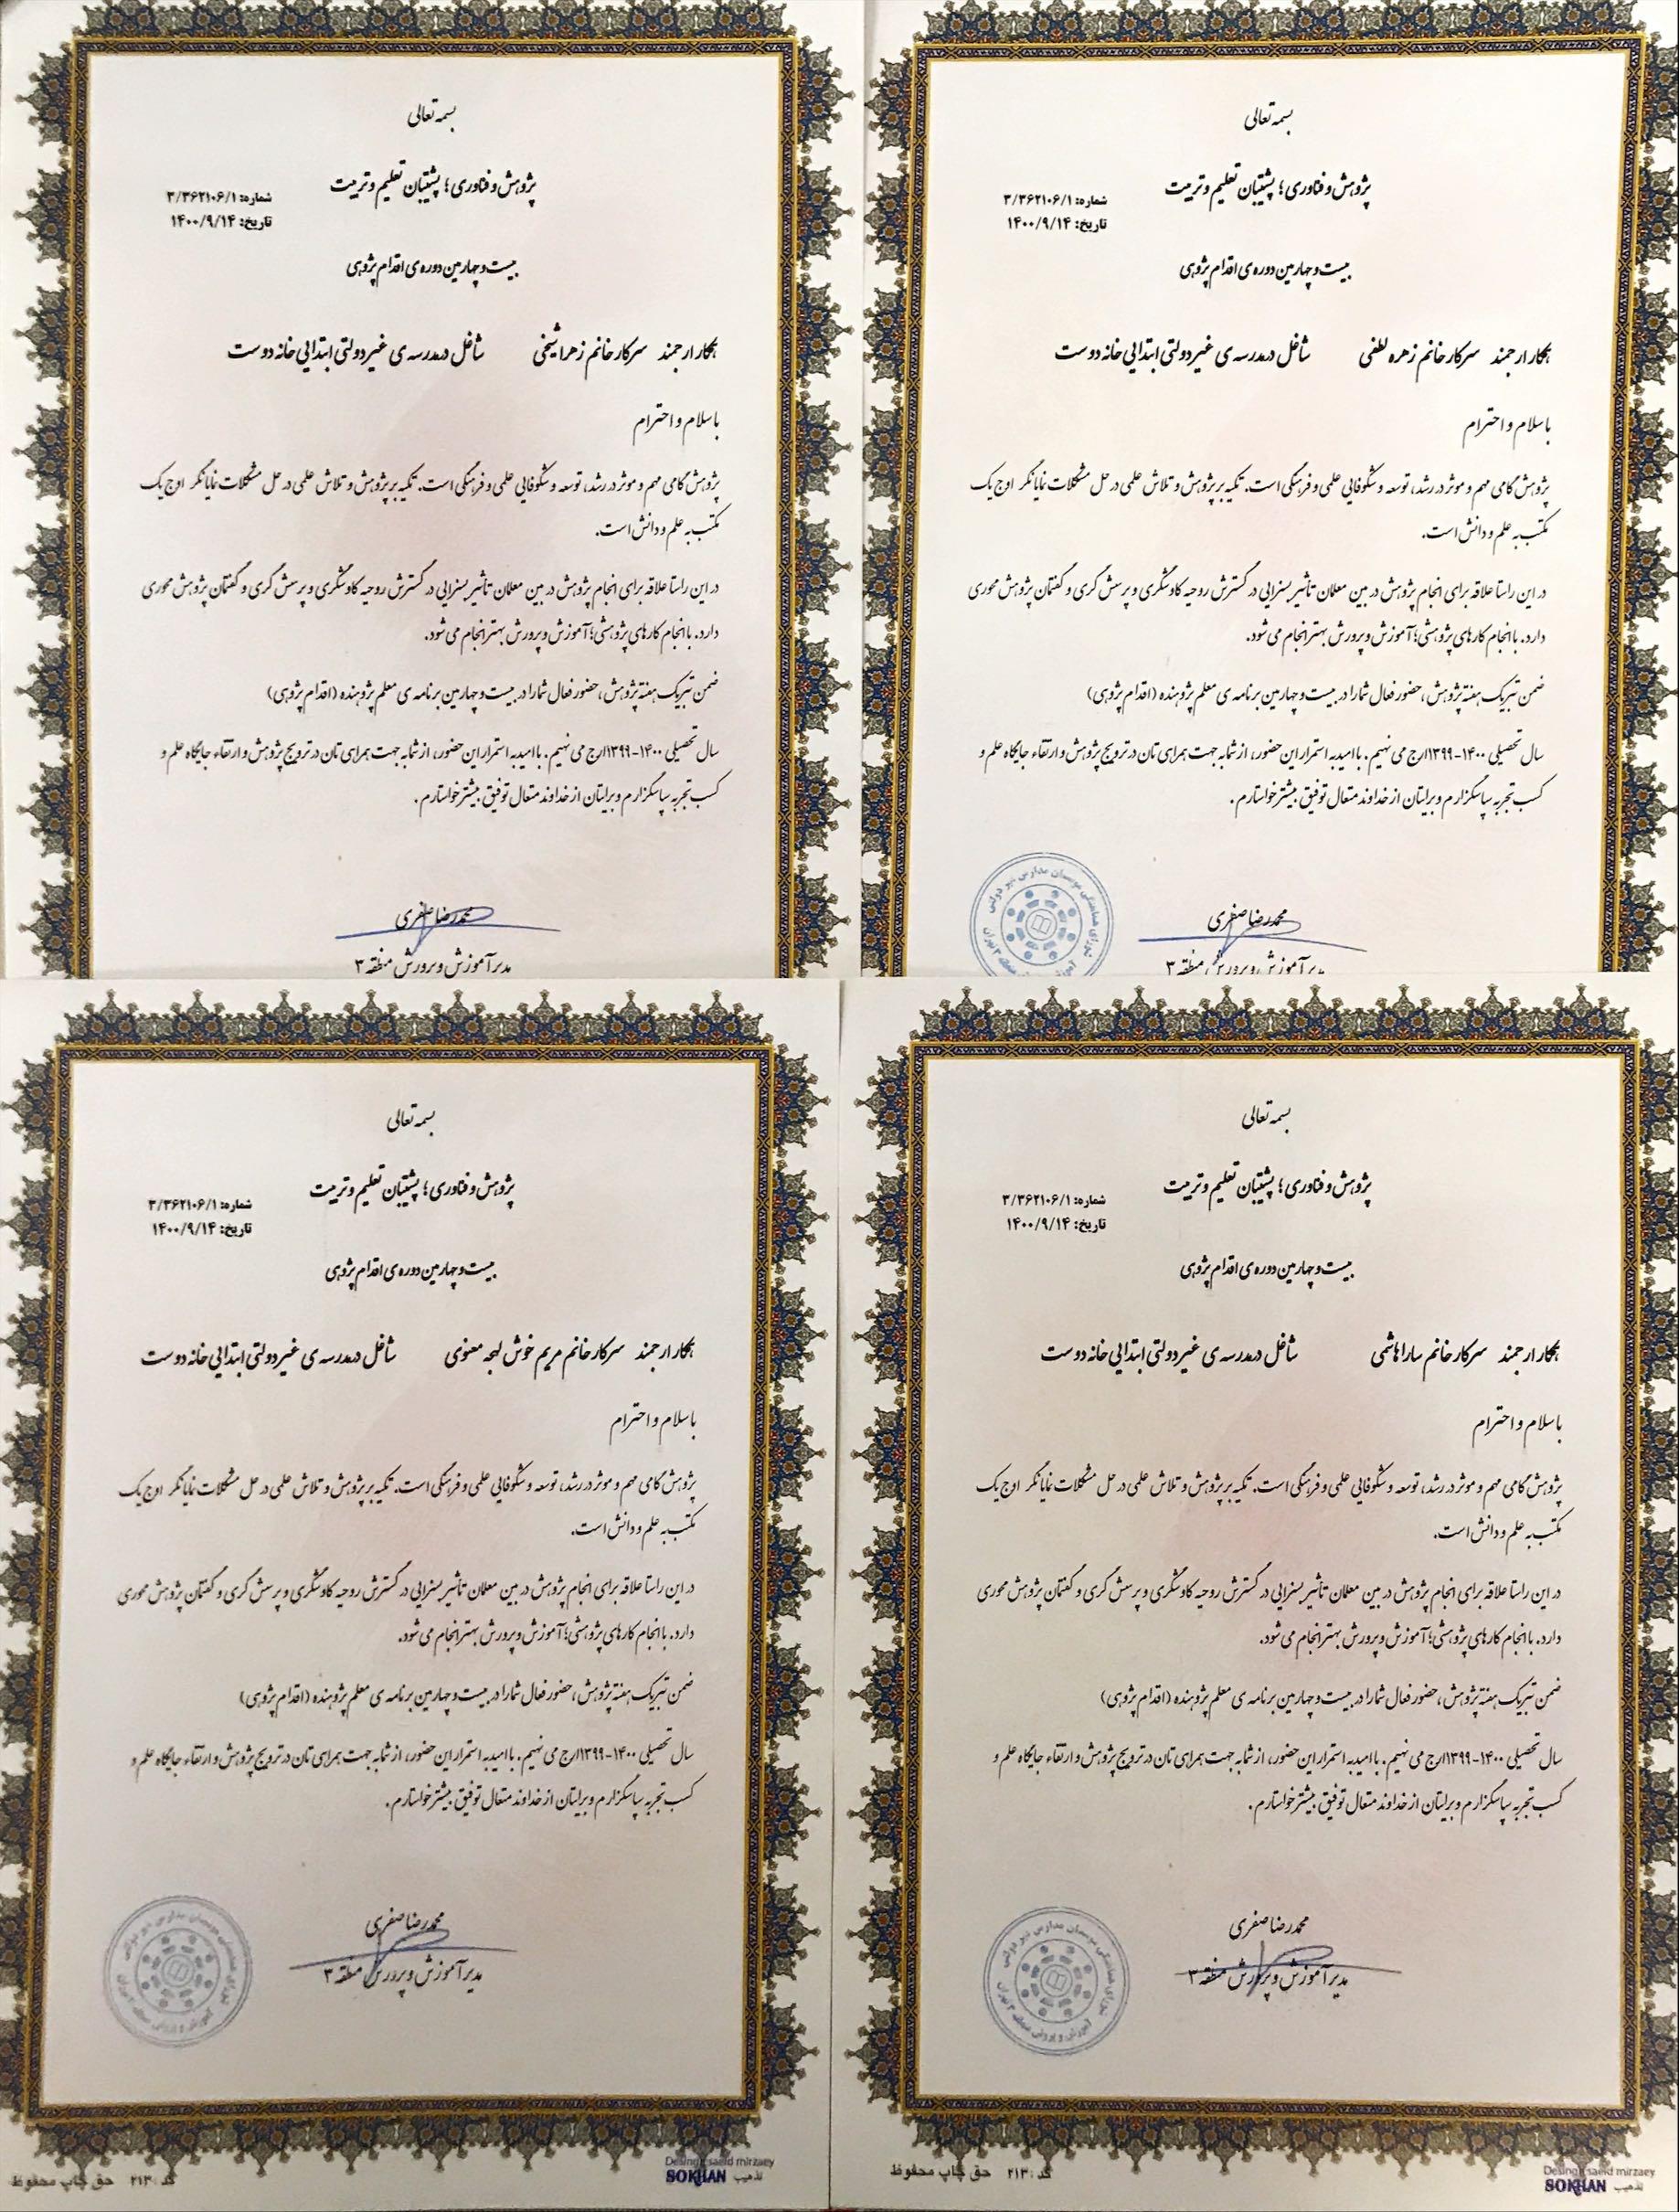 بسمه تعالی
پژوهش و فناوری؛ پشتیبان تعلیم و تربیت
شماره: ۳/۳۶۲۱۰۶/۱
تاریخ: ۱۴۰۰/۹/۱۴
بیست و چهارمین دوره ی اقدام پژوهی
همکار ارجمند سرکار خانم زهره لطفی شاغل در مدرسه ی غیر دولتی ابتدایی خانه دوست
با سلام و احترام
پژوهش گامی مهم و موثر در رشد، توسعه و شکوفایی علمی و فرهنگی است. تکیه بر پژوهش و تلاش علمی در حل مشکلات نمایانگر اوج یک
مکتب به علم و دانش است.
در این راستا علاقه برای انجام پژوهش در بین معلمان تأثیر بسزایی در گسترش روحیه کاوشگری و پرسش گری و گفتمان پژوهش محوری
دارد. با انجام کارهای پژوهشی؛ آموزش و پرورش بهتر انجام می شود.
ضمن تبریک هفته پژوهش، حضور فعال شما را در بیست و چهارمین برنامه ی معلم پژوهنده (اقدام پژوهی)
سال تحصیلی ۱۴۰۰-۱۳۹۹ ارج می نهیم. با امید به استمرار این حضور، از شما به جهت همراهی تان در ترویج پژوهش و ارتقاء جایگاه علم و
کسب تجربه سپاسگزارم و برایتان از خداوند متعال توفیق بیشتر خواستارم.
محمدرضا صفری
مدیر آموزش و پرورش منطقه ۳
شورای هماهنگی موسسان مدارس غیر دولتی
بسمه تعالی
پژوهش و فناوری؛ پشتیبان تعلیم و تربیت
شماره: ۳/۳۶۲۱۰۶/۱
تاریخ: ۱۴۰۰/۹/۱۴
بیست و چهارمین دوره ی اقدام پژوهی
همکار ارجمند سرکار خانم زهرا شیخی شاغل در مدرسه ی غیر دولتی ابتدایی خانه دوست
با سلام و احترام
پژوهش گامی مهم و موثر در رشد، توسعه و شکوفایی علمی و فرهنگی است. تکیه بر پژوهش و تلاش علمی در حل مشکلات نمایانگر اوج یک
مکتب به علم و دانش است.
در این راستا علاقه برای انجام پژوهش در بین معلمان تأثیر بسزایی در گسترش روحیه کاوشگری و پرسش گری و گفتمان پژوهش محوری
دارد. با انجام کارهای پژوهشی؛ آموزش و پرورش بهتر انجام می شود.
ضمن تبریک هفته پژوهش، حضور فعال شما را در بیست و چهارمین برنامه ی معلم پژوهنده (اقدام پژوهی)
سال تحصیلی ۱۴۰۰-۱۳۹۹ ارج می نهیم. با امید به استمرار این حضور، از شما به جهت همراهی تان در ترویج پژوهش و ارتقاء جایگاه علم و
کسب تجربه سپاسگزارم و برایتان از خداوند متعال توفیق بیشتر خواستارم.
محمدرضا صفری
مدیر آموزش و پرورش منطقه ۳
بسمه تعالی
پژوهش و فناوری؛ پشتیبان تعلیم و تربیت
شماره: ۳/۳۶۲۱۰۶/۱
تاریخ: ۱۴۰۰/۹/۱۴
بیست و چهارمین دوره ی اقدام پژوهی
همکار ارجمند سرکار خانم سارا هاشمی شاغل در مدرسه ی غیر دولتی ابتدایی خانه دوست
با سلام و احترام
پژوهش گامی مهم و موثر در رشد، توسعه و شکوفایی علمی و فرهنگی است. تکیه بر پژوهش و تلاش علمی در حل مشکلات نمایانگر اوج یک
مکتب به علم و دانش است.
در این راستا علاقه برای انجام پژوهش در بین معلمان تأثیر بسزایی در گسترش روحیه کاوشگری و پرسش گری و گفتمان پژوهش محوری
دارد. با انجام کارهای پژوهشی؛ آموزش و پرورش بهتر انجام می شود.
ضمن تبریک هفته پژوهش، حضور فعال شما را در بیست و چهارمین برنامه ی معلم پژوهنده (اقدام پژوهی)
سال تحصیلی ۱۴۰۰-۱۳۹۹ ارج می نهیم. با امید به استمرار این حضور، از شما به جهت همراهی تان در ترویج پژوهش و ارتقاء جایگاه علم و
کسب تجربه سپاسگزارم و برایتان از خداوند متعال توفیق بیشتر خواستارم.
محمدرضا صفری
مدیر آموزش و پرورش منطقه ۳
شورای هماهنگی موسسان مدارس غیر دولتی
آموزش و پرورش منطقه ۳ تهران
کد: ۲۱۳ حق چاپ محفوظ
Desing: saeid mirzaey
SOKHAN تذهیب
بسمه تعالی
پژوهش و فناوری؛ پشتیبان تعلیم و تربیت
شماره: ۳/۳۶۲۱۰۶/۱
تاریخ: ۱۴۰۰/۹/۱۴
بیست و چهارمین دوره ی اقدام پژوهی
همکار ارجمند سرکار خانم مریم خوش لهجه معنوی شاغل در مدرسه ی غیر دولتی ابتدایی خانه دوست
با سلام و احترام
پژوهش گامی مهم و موثر در رشد، توسعه و شکوفایی علمی و فرهنگی است. تکیه بر پژوهش و تلاش علمی در حل مشکلات نمایانگر اوج یک
مکتب به علم و دانش است.
در این راستا علاقه برای انجام پژوهش در بین معلمان تأثیر بسزایی در گسترش روحیه کاوشگری و پرسش گری و گفتمان پژوهش محوری
دارد. با انجام کارهای پژوهشی؛ آموزش و پرورش بهتر انجام می شود.
ضمن تبریک هفته پژوهش، حضور فعال شما را در بیست و چهارمین برنامه ی معلم پژوهنده (اقدام پژوهی)
سال تحصیلی ۱۴۰۰-۱۳۹۹ ارج می نهیم. با امید به استمرار این حضور، از شما به جهت همراهی تان در ترویج پژوهش و ارتقاء جایگاه علم و
کسب تجربه سپاسگزارم و برایتان از خداوند متعال توفیق بیشتر خواستارم.
محمدرضا صفری
مدیر آموزش و پرورش منطقه ۳
شورای هماهنگی موسسان مدارس غیر دولتی
آموزش و پرورش منطقه ۳ تهران
کد: ۲۱۳ حق چاپ محفوظ
Desing: saeid mirzaey
SOKHAN تذهیب